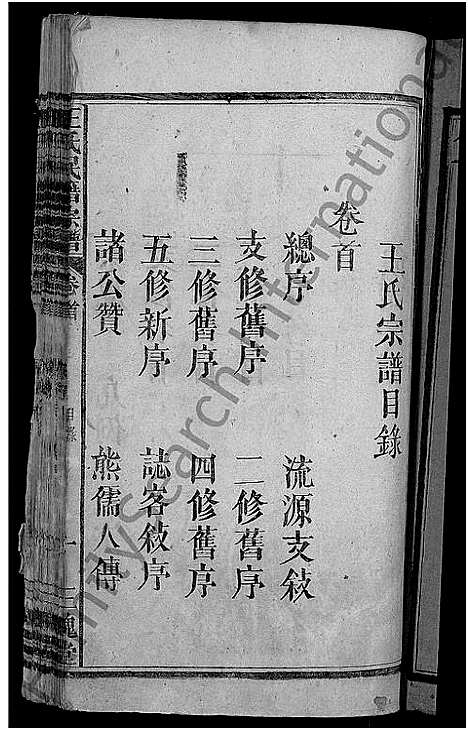 王氏宗譜目錄
卷首
總序 流源支敍
支修舊序 二修舊序
三修舊序 四修舊序
五修新序 誌客敍序
諸公贊 熊儒人傳
王氏民譜宗譜 卷首 目錄 一 三槐堂